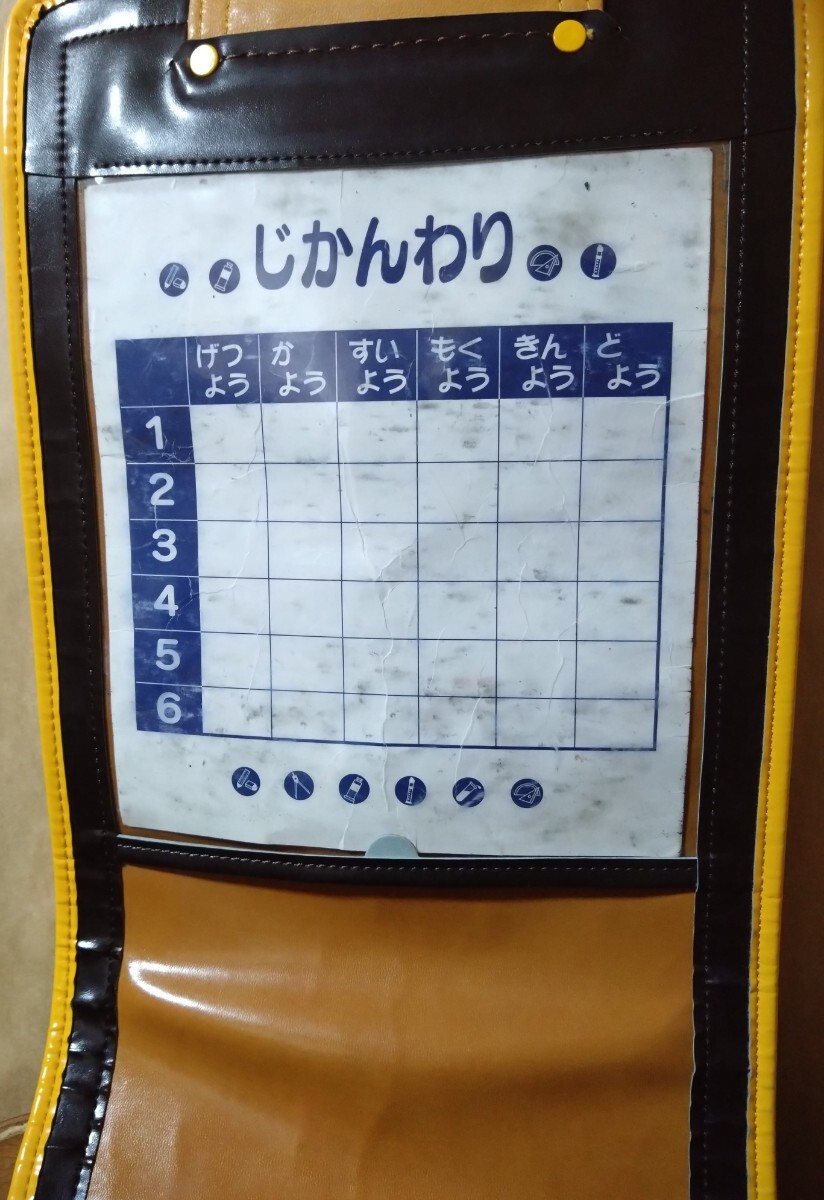 じかんわり
げつ か すい もく きん ど
よう よう よう よう よう よう
1
2
3
4
5
6